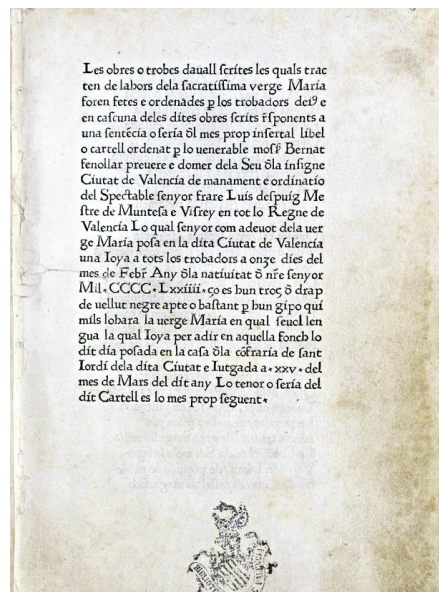 Les obres o trobes dauall scrites les quals trac
ten de lahors dela sacratissima verge Maria
foren fetes e ordenades ꝑ los trobadors deiꝰ e
en cascuna deles dites obres scrits r̃sponents a
una sentẽcia o seria d̃l mes prop insertat libel
o cartell ordenat ꝑ lo uenerable mosṽ Bernat
fenollar preuere e domer dela Seu d̃la insigne
Ciutat de Valencia de manament e ordinatio
del Spectable senyor frare Luis despuig Me
stre de Muntesa e Visrey en tot lo Regne de
Valencia Lo qual senyor com adeuot dela uer
ge Maria posa en la dita Ciutat de Valencia
una Ioya a tots los trobadors a onze dies del
mes de Febr̃ Any d̃la natiuitat d̃ nr̃e senyor
Mil. CCCC. Lxxiiii. ço es hun troç d̃ drap
de uellut negre apte o bastant ꝑ hun gipo qui
mils lohara la uerge Maria en qual seuol len
gua la qual Ioya per adir en aquella fonch lo
dit dia posada en la casa d̃la cõfraria de sant
Iordi dela dita Ciutat e Iutgada a. xxv. del
mes de Mars del dit any Lo tenor o seria del
dit Cartell es lo mes prop seguent.